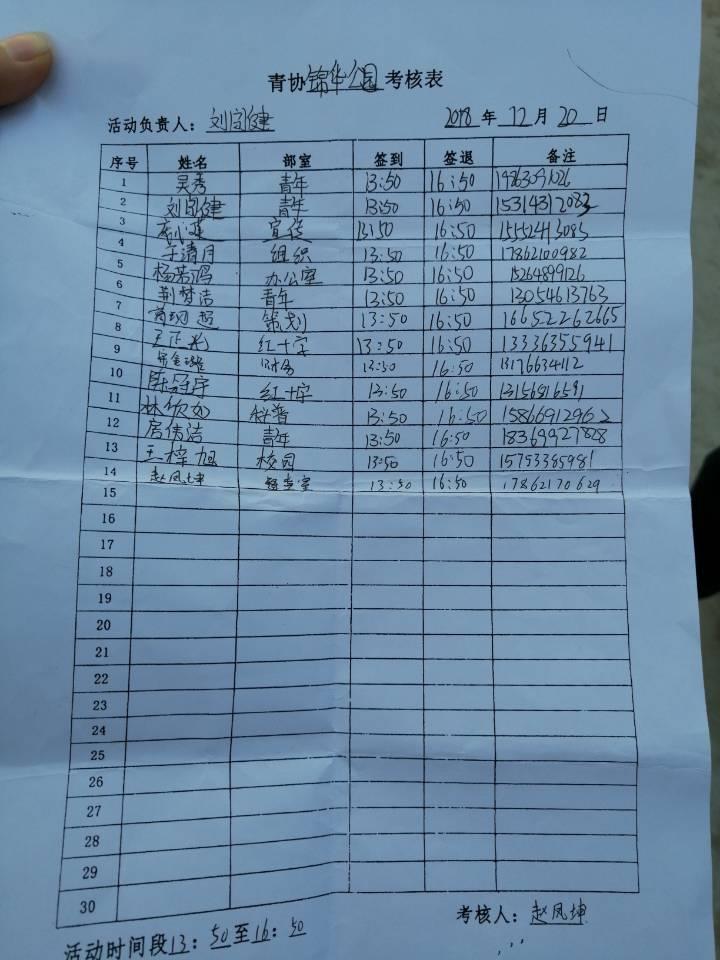 青协锦华公园考核表
活动负责人：刘国健 2018年12月20日
序号 姓名 部室 签到 签退 备注
1 吴秀 青年 13:50 16:50
2 刘国健 青年 13:50 16:50 15314312083
3 宣传 13:50 16:50 15552413085
4 于清月 组织 13:50 16:50 17862100982
5 杨若鸿 办公室 13:50 16:50 15264899126
6 荆梦洁 青年 13:50 16:50 13054613763
7 策划 13:50 16:50 16652262665
8 王正光 红十字 13:50 16:50 13336355941
9 13:50 16:50 13176634112
10 陈冠宇 红十字 13:50 16:50 13156816591
11 林 科普 13:50 16:50 15866912962
12 房倩洁 青年 13:50 16:50 18369927828
13 王梓旭 校园 13:50 16:50 15753385981
14 赵凤坤 13:50 16:50 17862170629
15
16
17
18
19
20
21
22
23
24
25
26
27
28
29
30
考核人：赵凤坤
活动时间段13：50至16：50